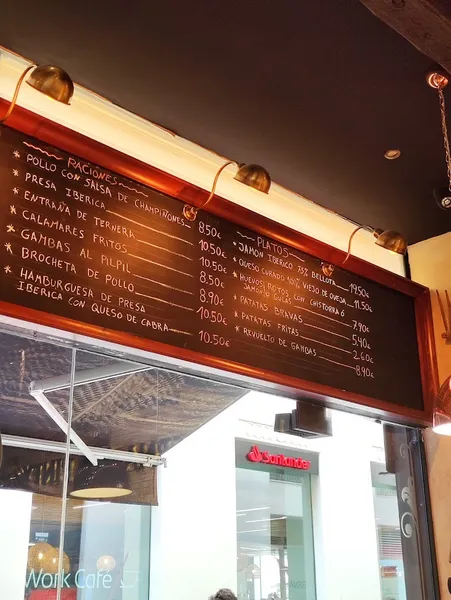 RACIONES
* POLLO CON SALSA DE CHAMPIÑONES 8.50€
* PRESA IBERICA 10.50€
* ENTRAÑA DE TERNERA 10.50€
* CALAMARES FRITOS 8.50€
* GAMBAS AL PILPIL 8.90€
* BROCHETA DE POLLO 10.50€
* HAMBURGUESA DE PRESA
IBERICA CON QUESO DE CABRA 10.50€
PLATOS
* JAMON IBERICO 75% BELLOTA 19.50€
* QUESO CURADO 100% VIEJO DE OVEJA 11.50€
* HUEVOS ROTOS CON CHISTORRA ó
JAMON o GULAS 7.90€
* PATATAS BRAVAS 5.40€
* PATATAS FRITAS 2.60€
* REVUELTO DE GAMBAS 8.90€
Santander
Work Café